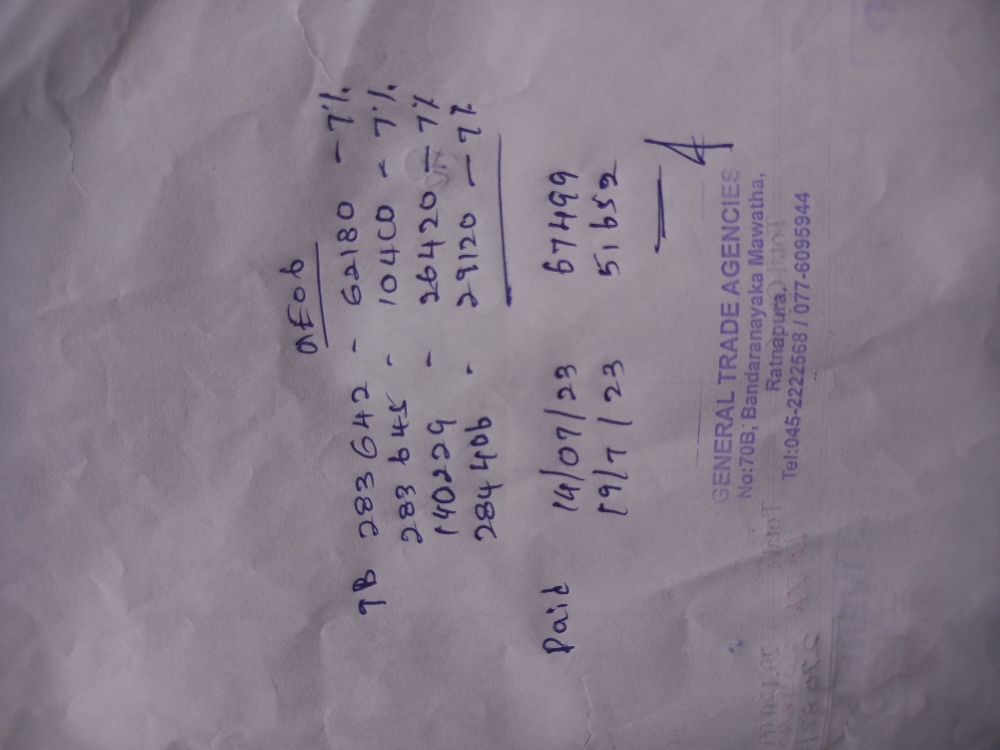 TB 283642 - 62180 - 7%
283645 - 10400 - 7%
140229 - 26420 - 7%
284406 - 29120 - 7%
Paid 14/07/23 67499
19/7/23 51652
GENERAL TRADE AGENCIES
No:70B, Bandaranayaka Mawatha,
Ratnapura.
Tel:045-2222568 / 077-6095944